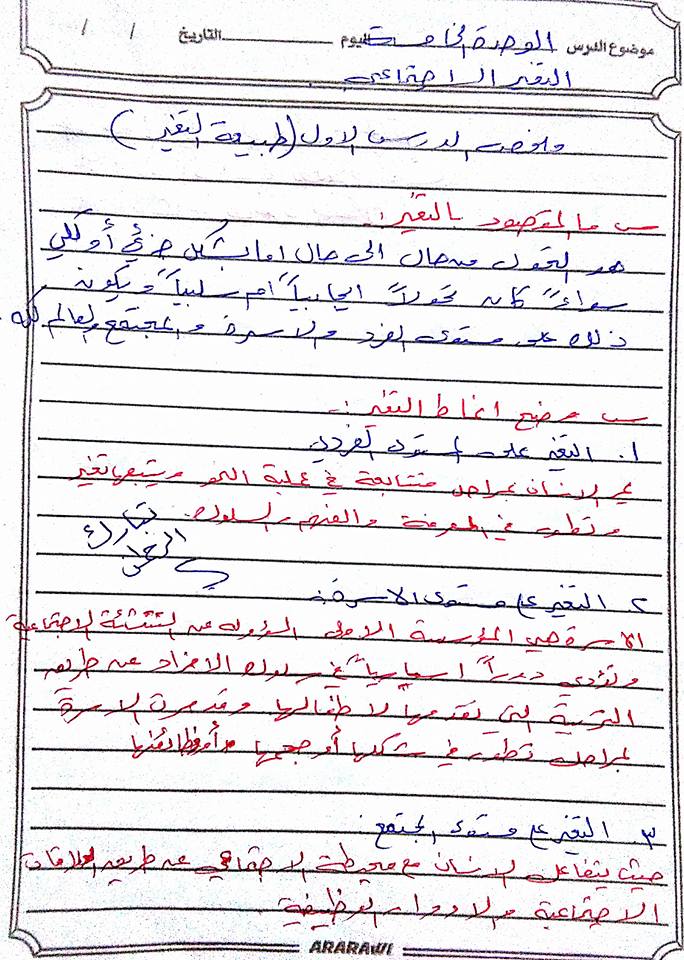 موضوع الدرس الوحدة الخامسة اليوم التاريخ / /
التغير الاجتماعي
ملخص الدرس الاول (طبيعة التغير)
س ما المقصود بالتغير:
هو التحول من حال الى حال اما بشكل جزئي أو كلي
سواءً كان تحولاً ايجابياً ام سلبياً ويكون
ذلك على مستوى الفرد والاسرة والمجتمع والعالم كله.
س وضح انماط التغير:-
١. التغير على المستوى الفردي
يمر الانسان بمراحل متتابعة في عملية النمو ويتبعها تغير
وتطور في المعرفة والفهم والسلوك.
٢ التغير على مستوى الاسرة:
الاسرة هي المؤسسة الاولى المسؤوله عن التنشئة الاجتماعية
وتؤدي دوراً في سلوك الافراد عن طريق
التربية التي تقدمها لاطفالها وقد مرت الاسرة
بمراحل تطور في شكلها أو حجمها وأو وظائفها
٣. التغير على مستوى المجتمع:
حيث يتفاعل الانسان مع محيطة الاجتماعي عن طريق العلاقات
الاجتماعية والادوار الوظيفية
ARARAWI